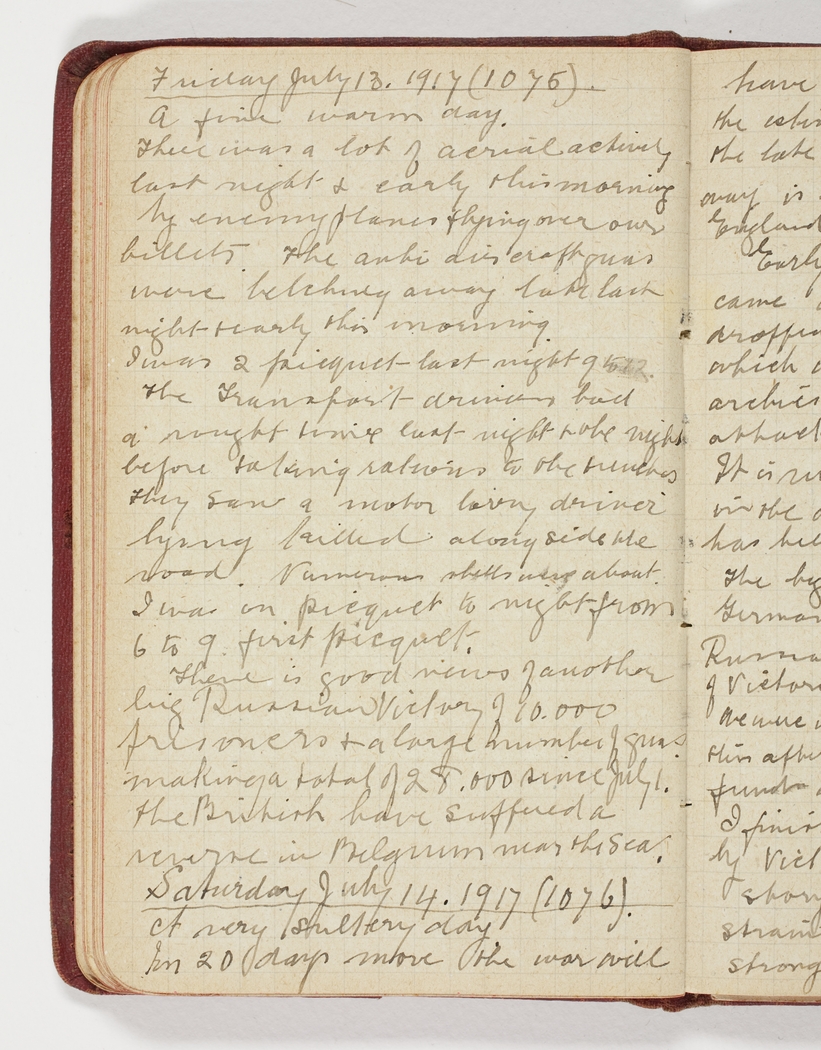 Friday July 13. 1917 (1075).
A fine warm day.
There was a lot of aerial activity
last night & early this morning
by enemy planes flying over our
billets The anti aircraft guns
were belching away late last
night & early this morning
I was 2 picquet last night 9 to 12.
The Transport drivers had
a rought time last night & the night
before taking rations to the trenches
They saw a motor lorry driver
lying killed alongside the
road. Numerous shells were about.
I was on picquet to night from
6 to 9. first picquet.
There is good news of another
big Russian Victory of 10.000
prisoners & a large number of guns
making a total of 28.000 since July 1.
The British have suffered a
reverse in Belgium near the Sea.
Saturday July 14. 1917 (1076).
A very sultery day
In 20 days more the war will
have
the
the late
away is
England
Early
came
dropped
which
archies
attack
It is
in the
has
The big
German
Russia
of Victor
We were
this after
fund
I finis
by Vict
story
strain
strong